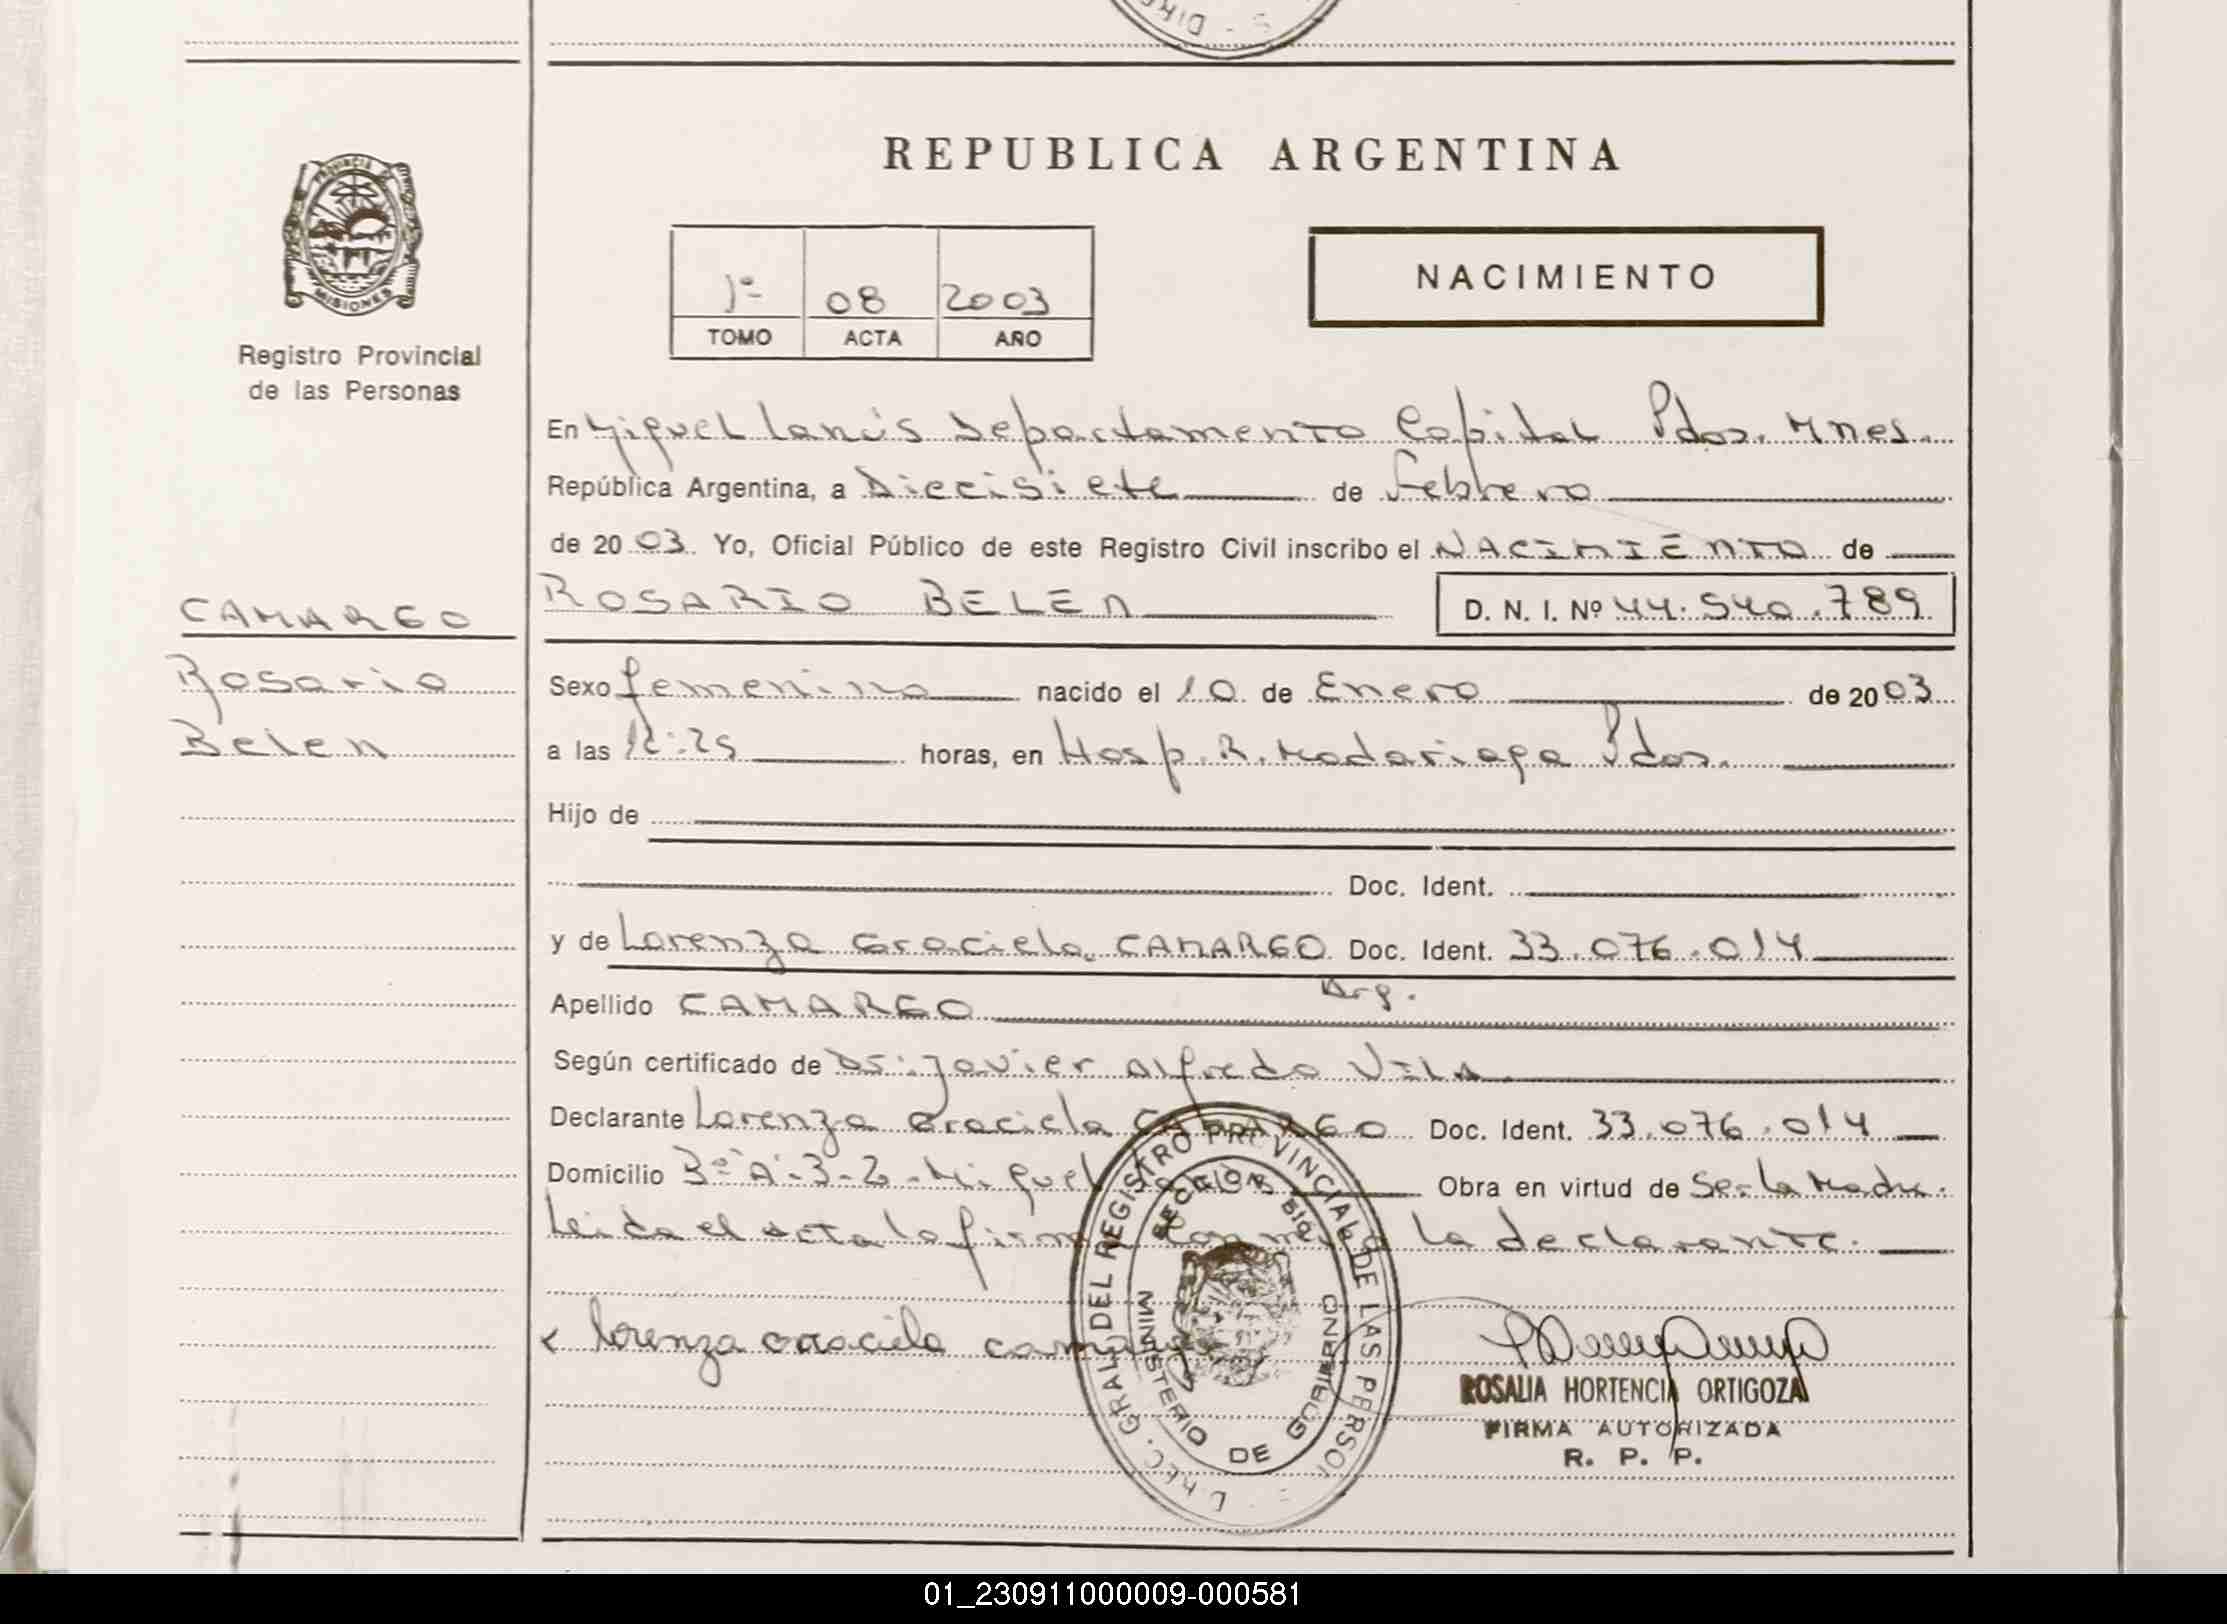 REPUBLICA ARGENTINA
PROVINCIA DE
MISIONES
Registro Provincial
de las Personas
1º 08 2003
TOMO ACTA AÑO
NACIMIENTO
En Miguel Lanús Departamento Capital Pdas. Mnes.
República Argentina, a Diecisiete de Febrero
de 2003. Yo, Oficial Público de este Registro Civil inscribo el NACIMIENTO de
ROSARIO BELEN D. N. I. Nº 44.540.789
CAMARGO
Rosario
Belen
Sexo femenino nacido el 10 de Enero de 2003
a las 12:25 horas, en Hosp. R. Madariaga Pdas.
Hijo de
Doc. Ident.
y de Lorenza Graciela CAMARGO Doc. Ident. 33.076.014
Arg.
Apellido CAMARGO
Según certificado de Dr: Javier Alfredo VILA
Declarante Lorenza Graciela CAMARGO Doc. Ident. 33.076.014
Domicilio Bº "A"-3-2-Miguel Lanús Obra en virtud de Ser la Madre.
Leida el acta la firma conmigo la declarante.
Lorenza Graciela Camargo
DIREC. GRAL. DEL REGISTRO PROVINCIAL DE LAS PERSO
MINISTERIO DE GOBIERNO
ROSALIA HORTENCIA ORTIGOZA
FIRMA AUTORIZADA
R. P. P.
01_230911000009-000581